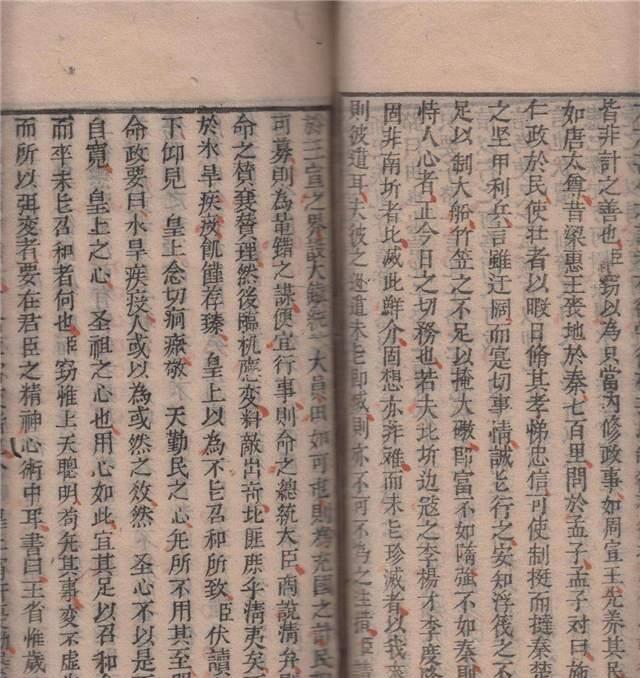 皆非計之善也臣窃以為只當內修政事如周宣王先養其民
如唐太尊昔梁惠王丧地於秦七百里問於孟子孟子对曰施
仁政於民使壮者以暇日脩其孝悌忠信可使制挺而撻秦楚
之坚甲利兵言雖迂闊而寔切事情誠能行之安知浮筏之不
足以制大船竹笠之不足以掩大礟即富不如隋强不如秦
特人心者正今日之切務也若大北圻边寇之李楊才李度
固非南圻者比滅此鮮介固想亦非难而未能殄滅者以我
則彼遁耳夫彼之遁未能即滅則亦不可不為之
於三宣之界設大鎮統一大員田如可屯則為充國之計民
可募則為晁錯之謀便宜行事則命之總統大臣商說情弁則
命之賛襄督理然後臨机應变料敵出奇北匪庶乎清夷矣
於水旱疾疫飢饉荐臻 皇上以為不能召和所致 臣伏讀
下仰見 皇上念切痌瘝敬 天勤民之心旡所不用其至
命政要曰水旱疾疫人或以為或然之效然 圣心不以是
自寬 皇上之心 圣祖之心也用心如此宜其足以召和
而卒未能召和者何也臣窃惟上天聰明苟旡其事变不虚
而所以弭变者要在君臣之精神心術中耳書曰王省惟歲